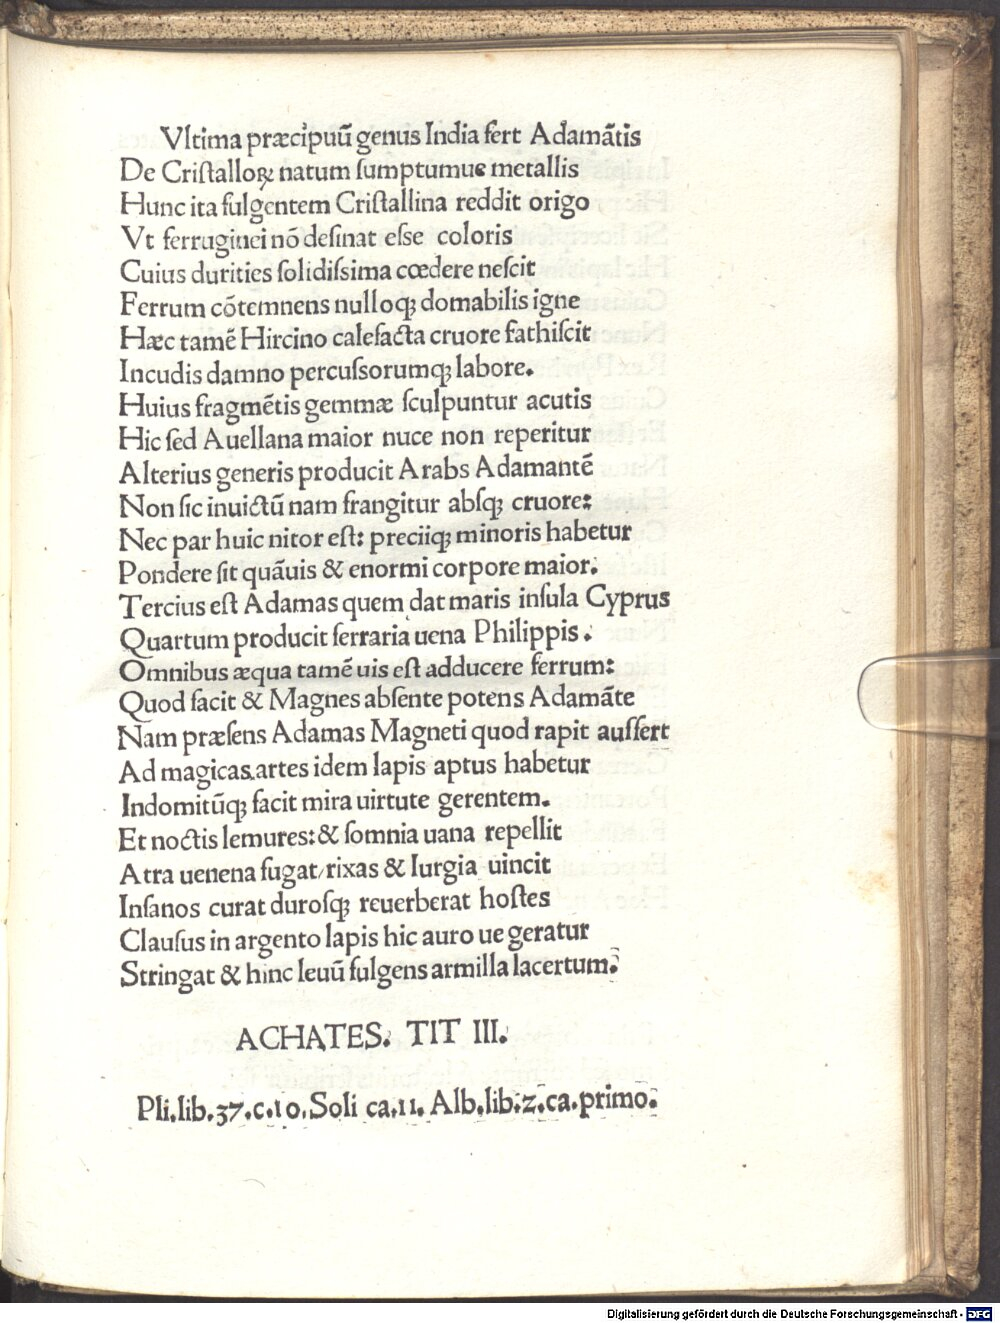 Vltima præcipuū genus India fert Adamātis
De Criſtalloꝝ natum ſumptumue metallis
Hunc ita fulgentem Criſtallina reddit origo
Vt ferruginei nō deſinat eſſe coloris
Cuius durities ſolidiſſima cœdere neſcit
Ferrum cōtemnens nulloqꝫ domabilis igne
Hæc tamē Hircino calefacta cruore fathiſcit
Incudis damno percuſſorumqꝫ labore.
Huius fragmētis gemmæ ſculpuntur acutis
Hic ſed Auellana maior nuce non reperitur
Alterius generis producit Arabs Adamantē
Non ſic inuictū nam frangitur abſqꝫ cruore:
Nec par huic nitor eſt: preciiqꝫ minoris habetur
Pondere ſit quāuis & enormi corpore maior.
Tercius eſt Adamas quem dat maris inſula Cyprus
Quartum producit ferraria uena Philippis.
Omnibus æqua tamē uis eſt adducere ferrum:
Quod facit & Magnes abſente potens Adamāte
Nam præſens Adamas Magneti quod rapit auffert
Ad magicas artes idem lapis aptus habetur
Indomitūqꝫ facit mira uirtute gerentem.
Et noctis lemures: & ſomnia uana repellit
Atra uenena fugat/rixas & Iurgia uincit
Inſanos curat duroſqꝫ reuerberat hoſtes
Clauſus in argento lapis hic auro ue geratur
Stringat & hinc leuū fulgens armilla lacertum.
ACHATES. TIT III.
Pli.lib.37.c.10.Soli ca.11. Alb.lib.2.ca.primo.
Digitalisierung gefördert durch die Deutsche Forschungsgemeinschaft - DFG